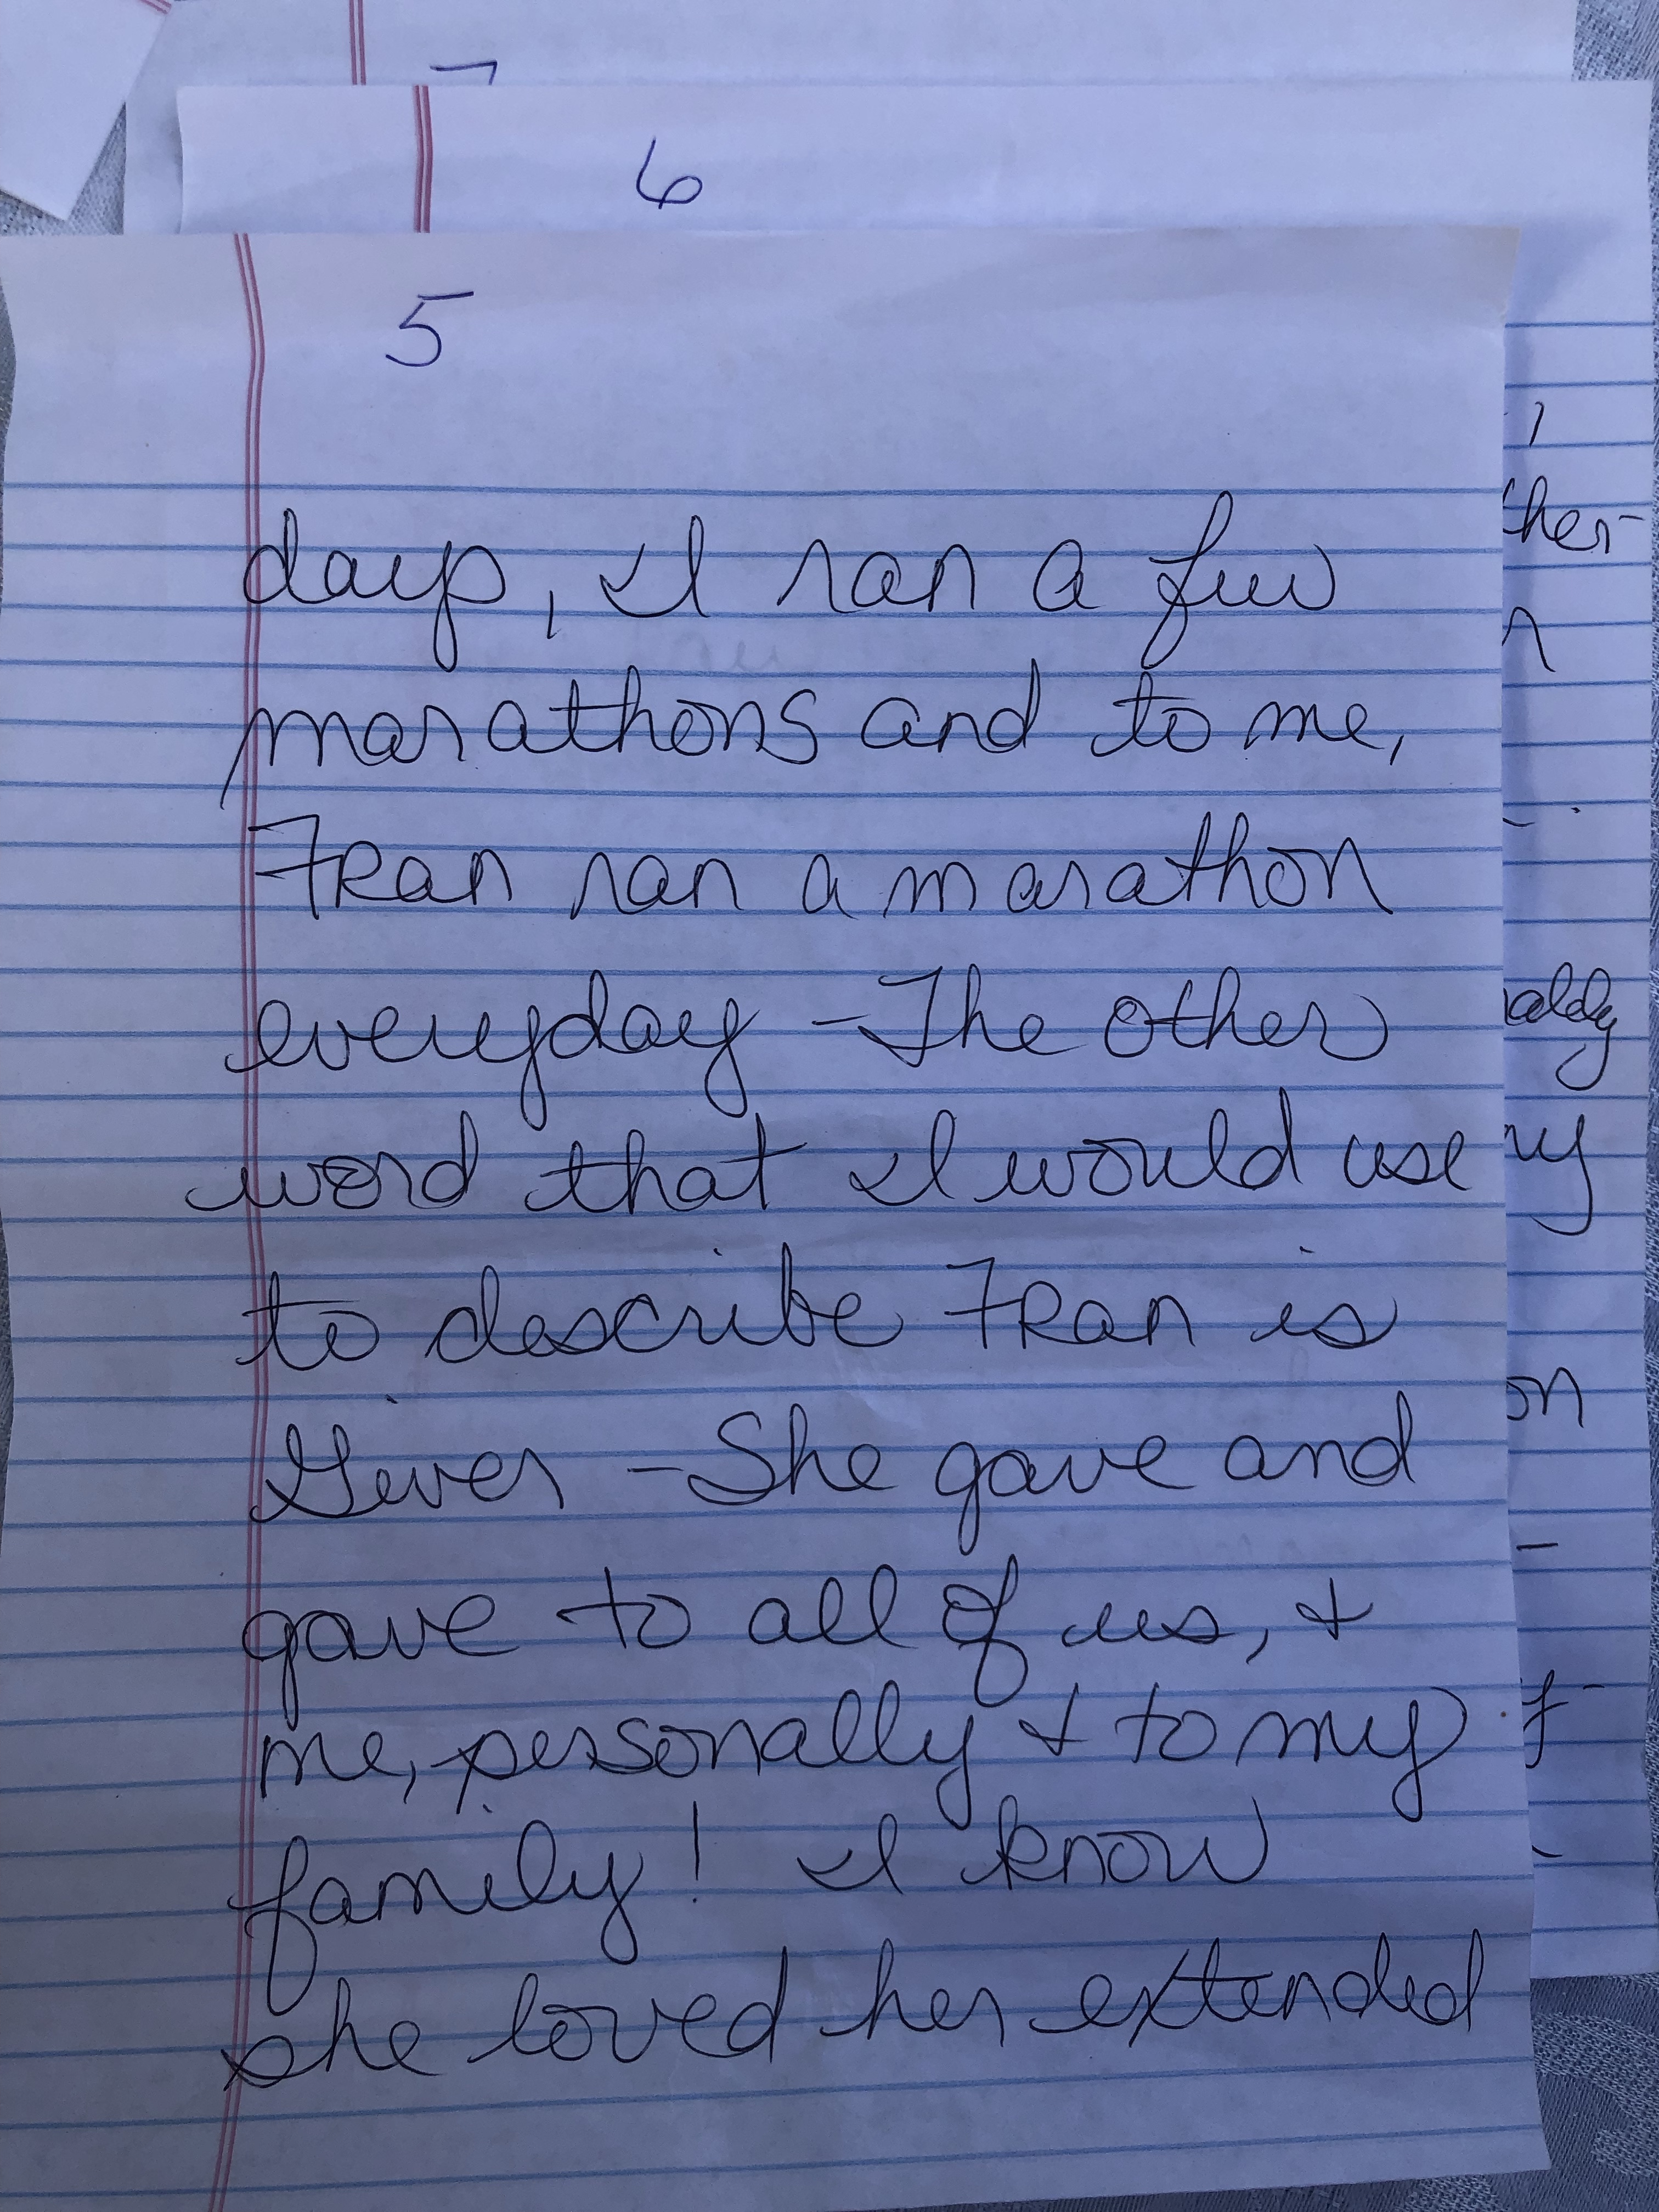 7
6
5
days, I ran a few
marathons and to me,
Fran ran a marathon
everyday - The other
word that I would use
to describe Fran is
Giver - She gave and
gave to all of us, +
me, personally + to my
family! I know
she loved her extended